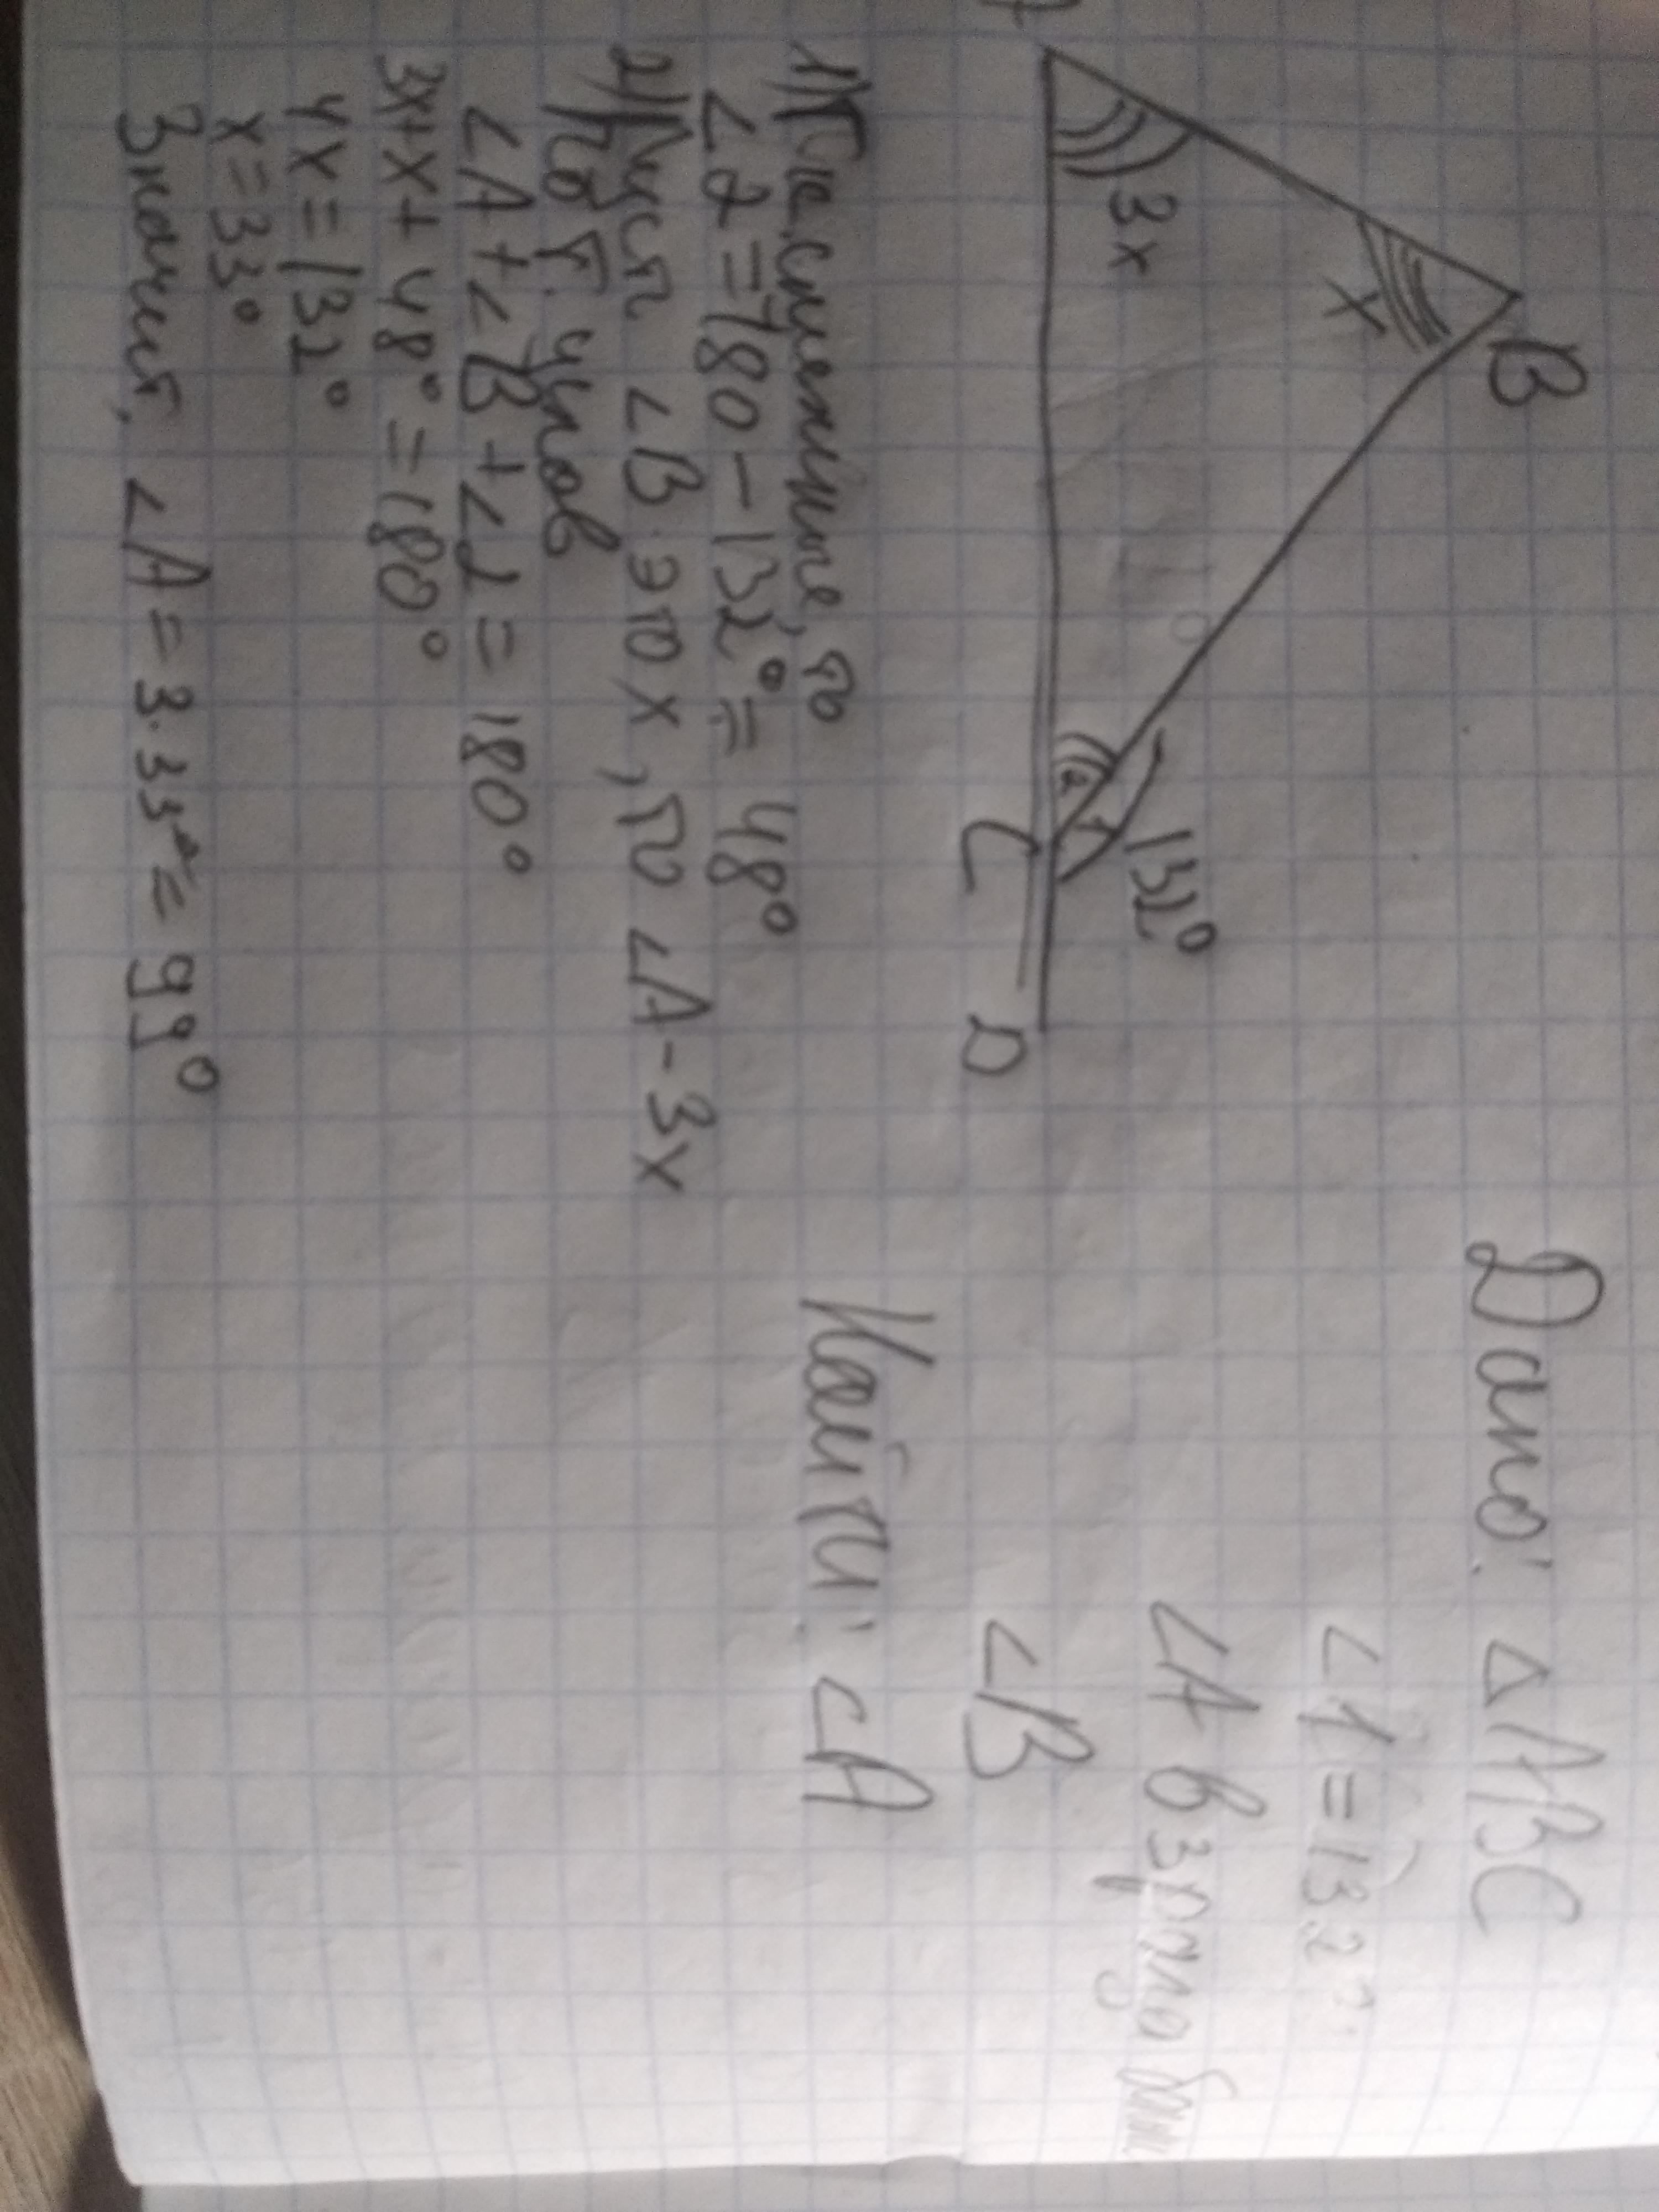 B
x
3x
132°
1
2
C
D
Дано: △ABC
∠1=132°
∠A в 3 раза бол
∠B
Найти: ∠A
1) Т.к. смежные, то
∠2=180-132°=48°
2) Пуст ∠B это x, то ∠A-3x
по т. углов
∠A+∠B+∠2=180°
3x+x+48°=180°
4x=132°
x=33°
Значит, ∠A=3·33°=99°